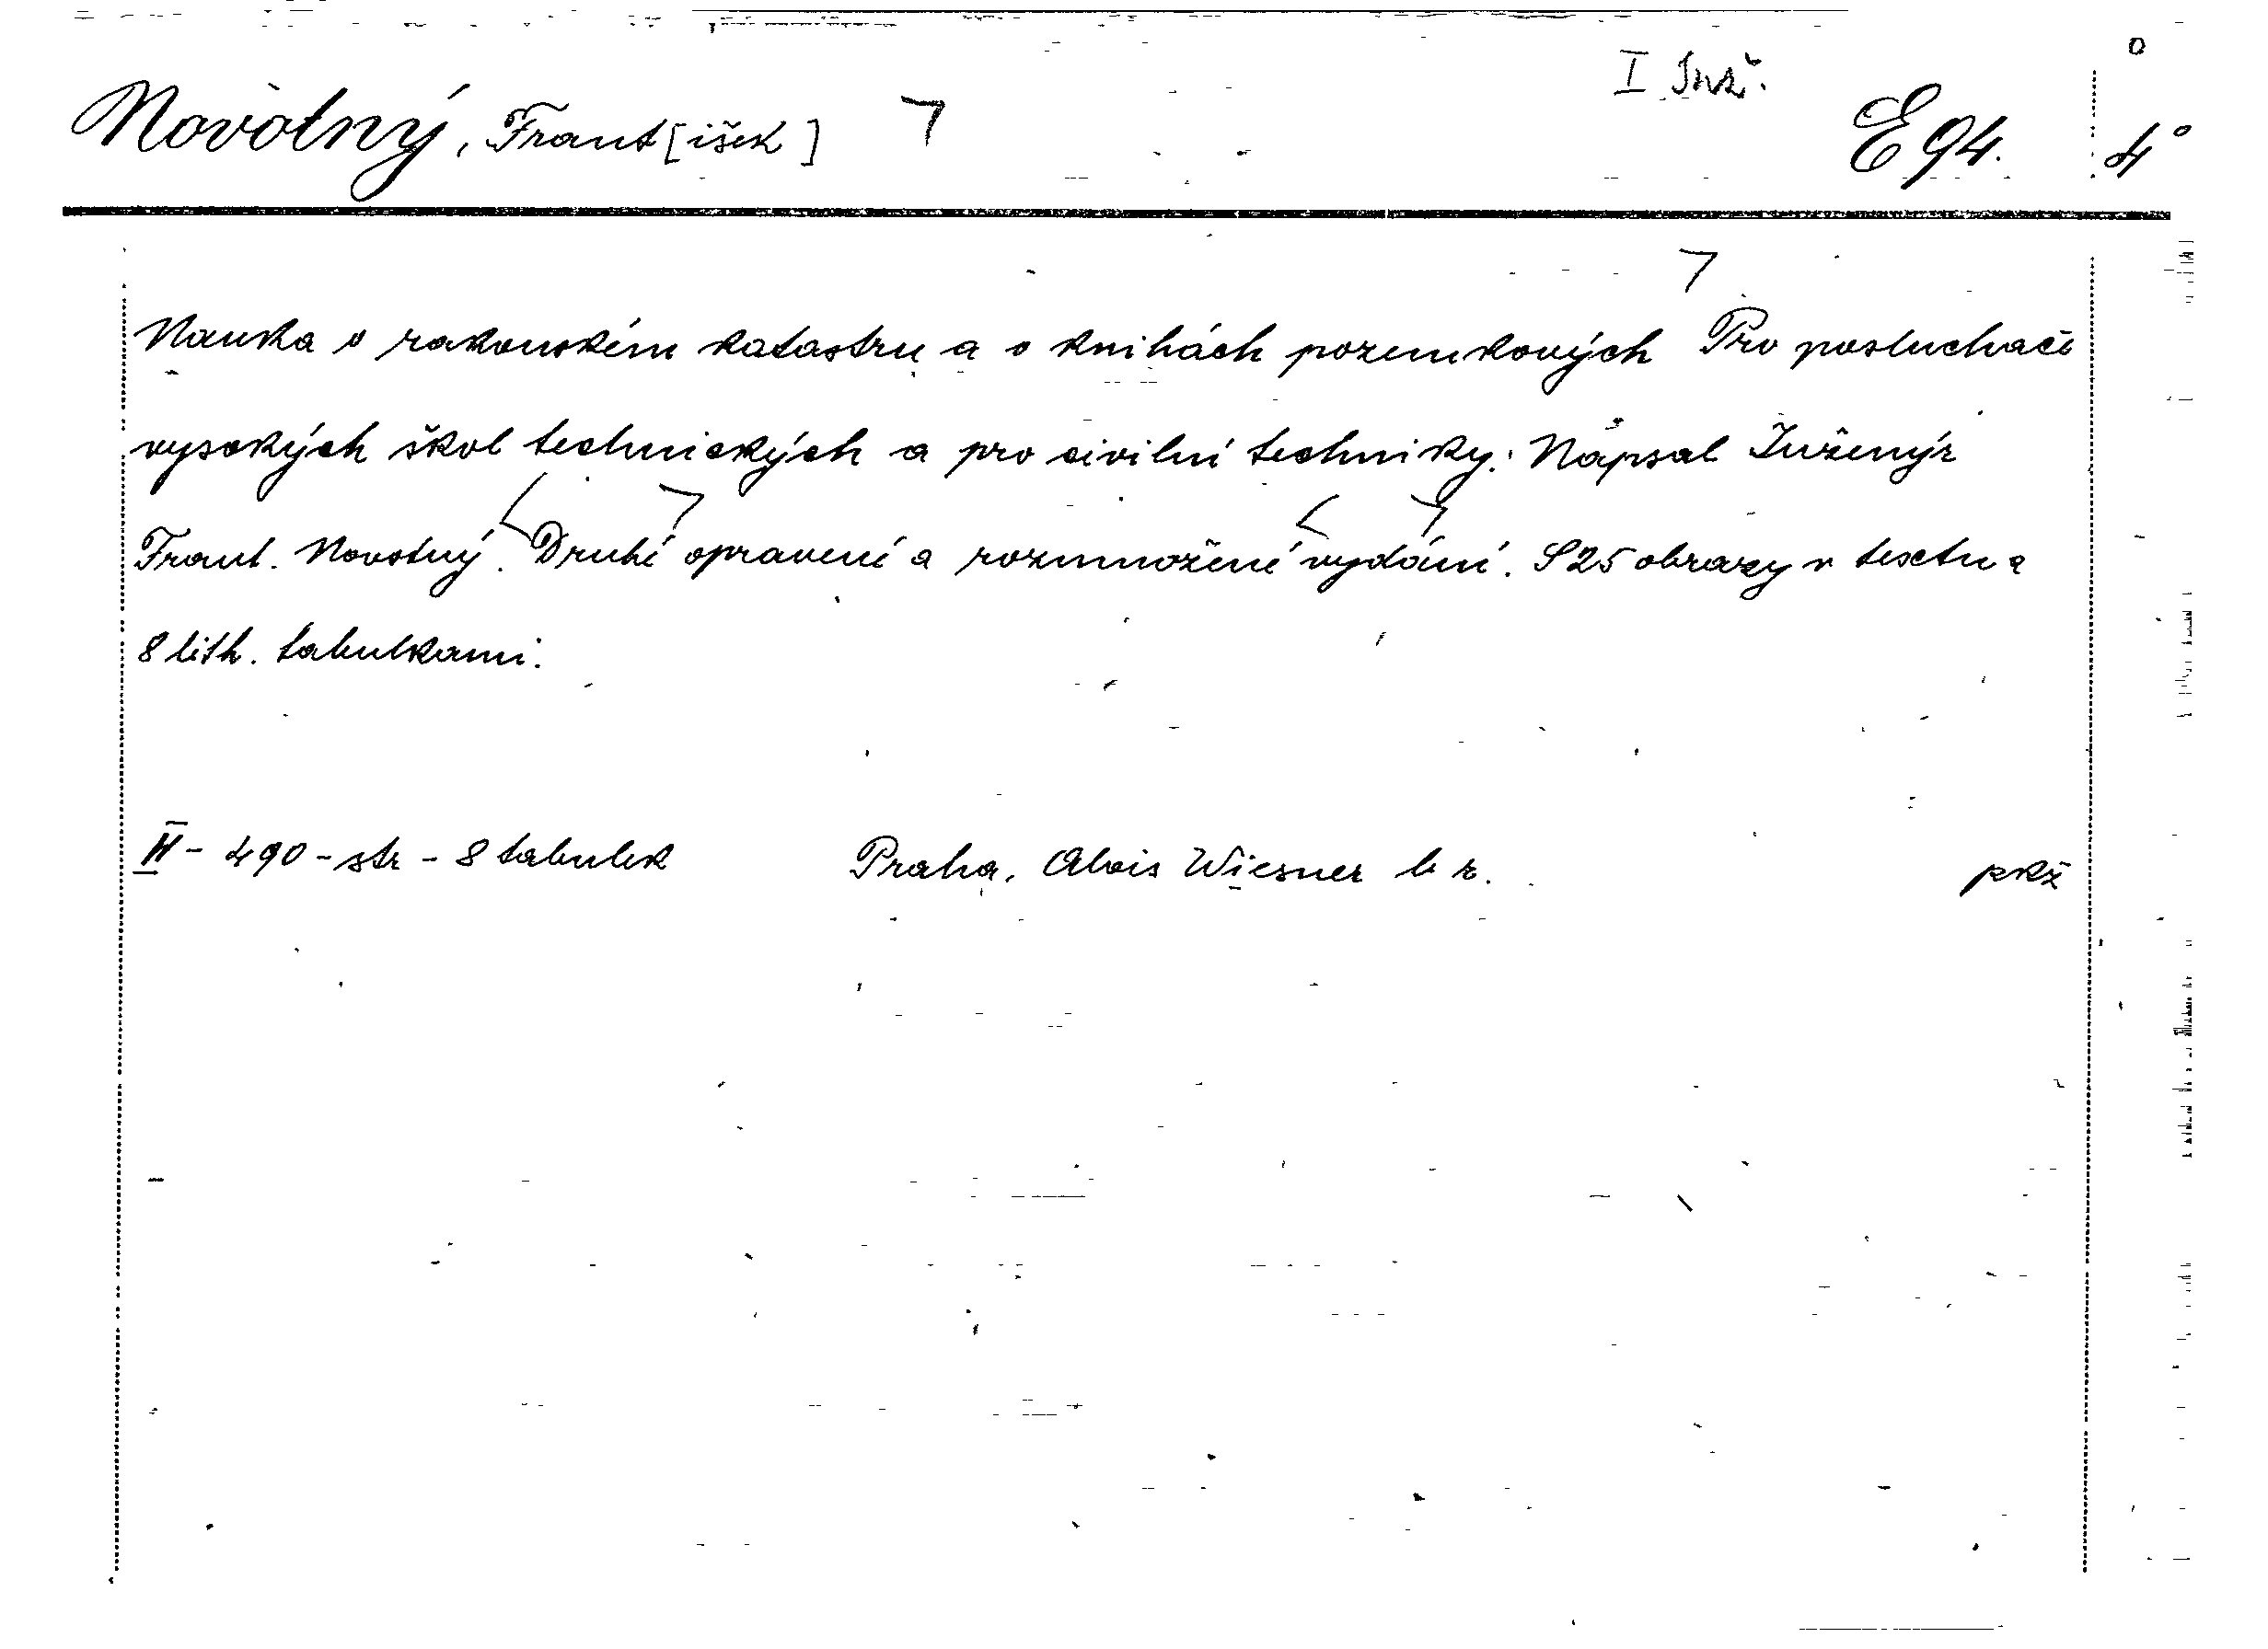 I Inž.
Novotný, Frant[išek] E 94. 4°
Nauka o rakouském katastru a o knihách pozemkových Pro posluchače
vysokých škol technických a pro civilní techniky. Napsal Inženýr
Frant. Novotný. Druhé opravené a rozmnožené vydání. S 25 obrazy v textu a
8 lith. tabulkami.
II - 490 - str - 8 tabulek Praha, Alois Wiesner b r. pkž